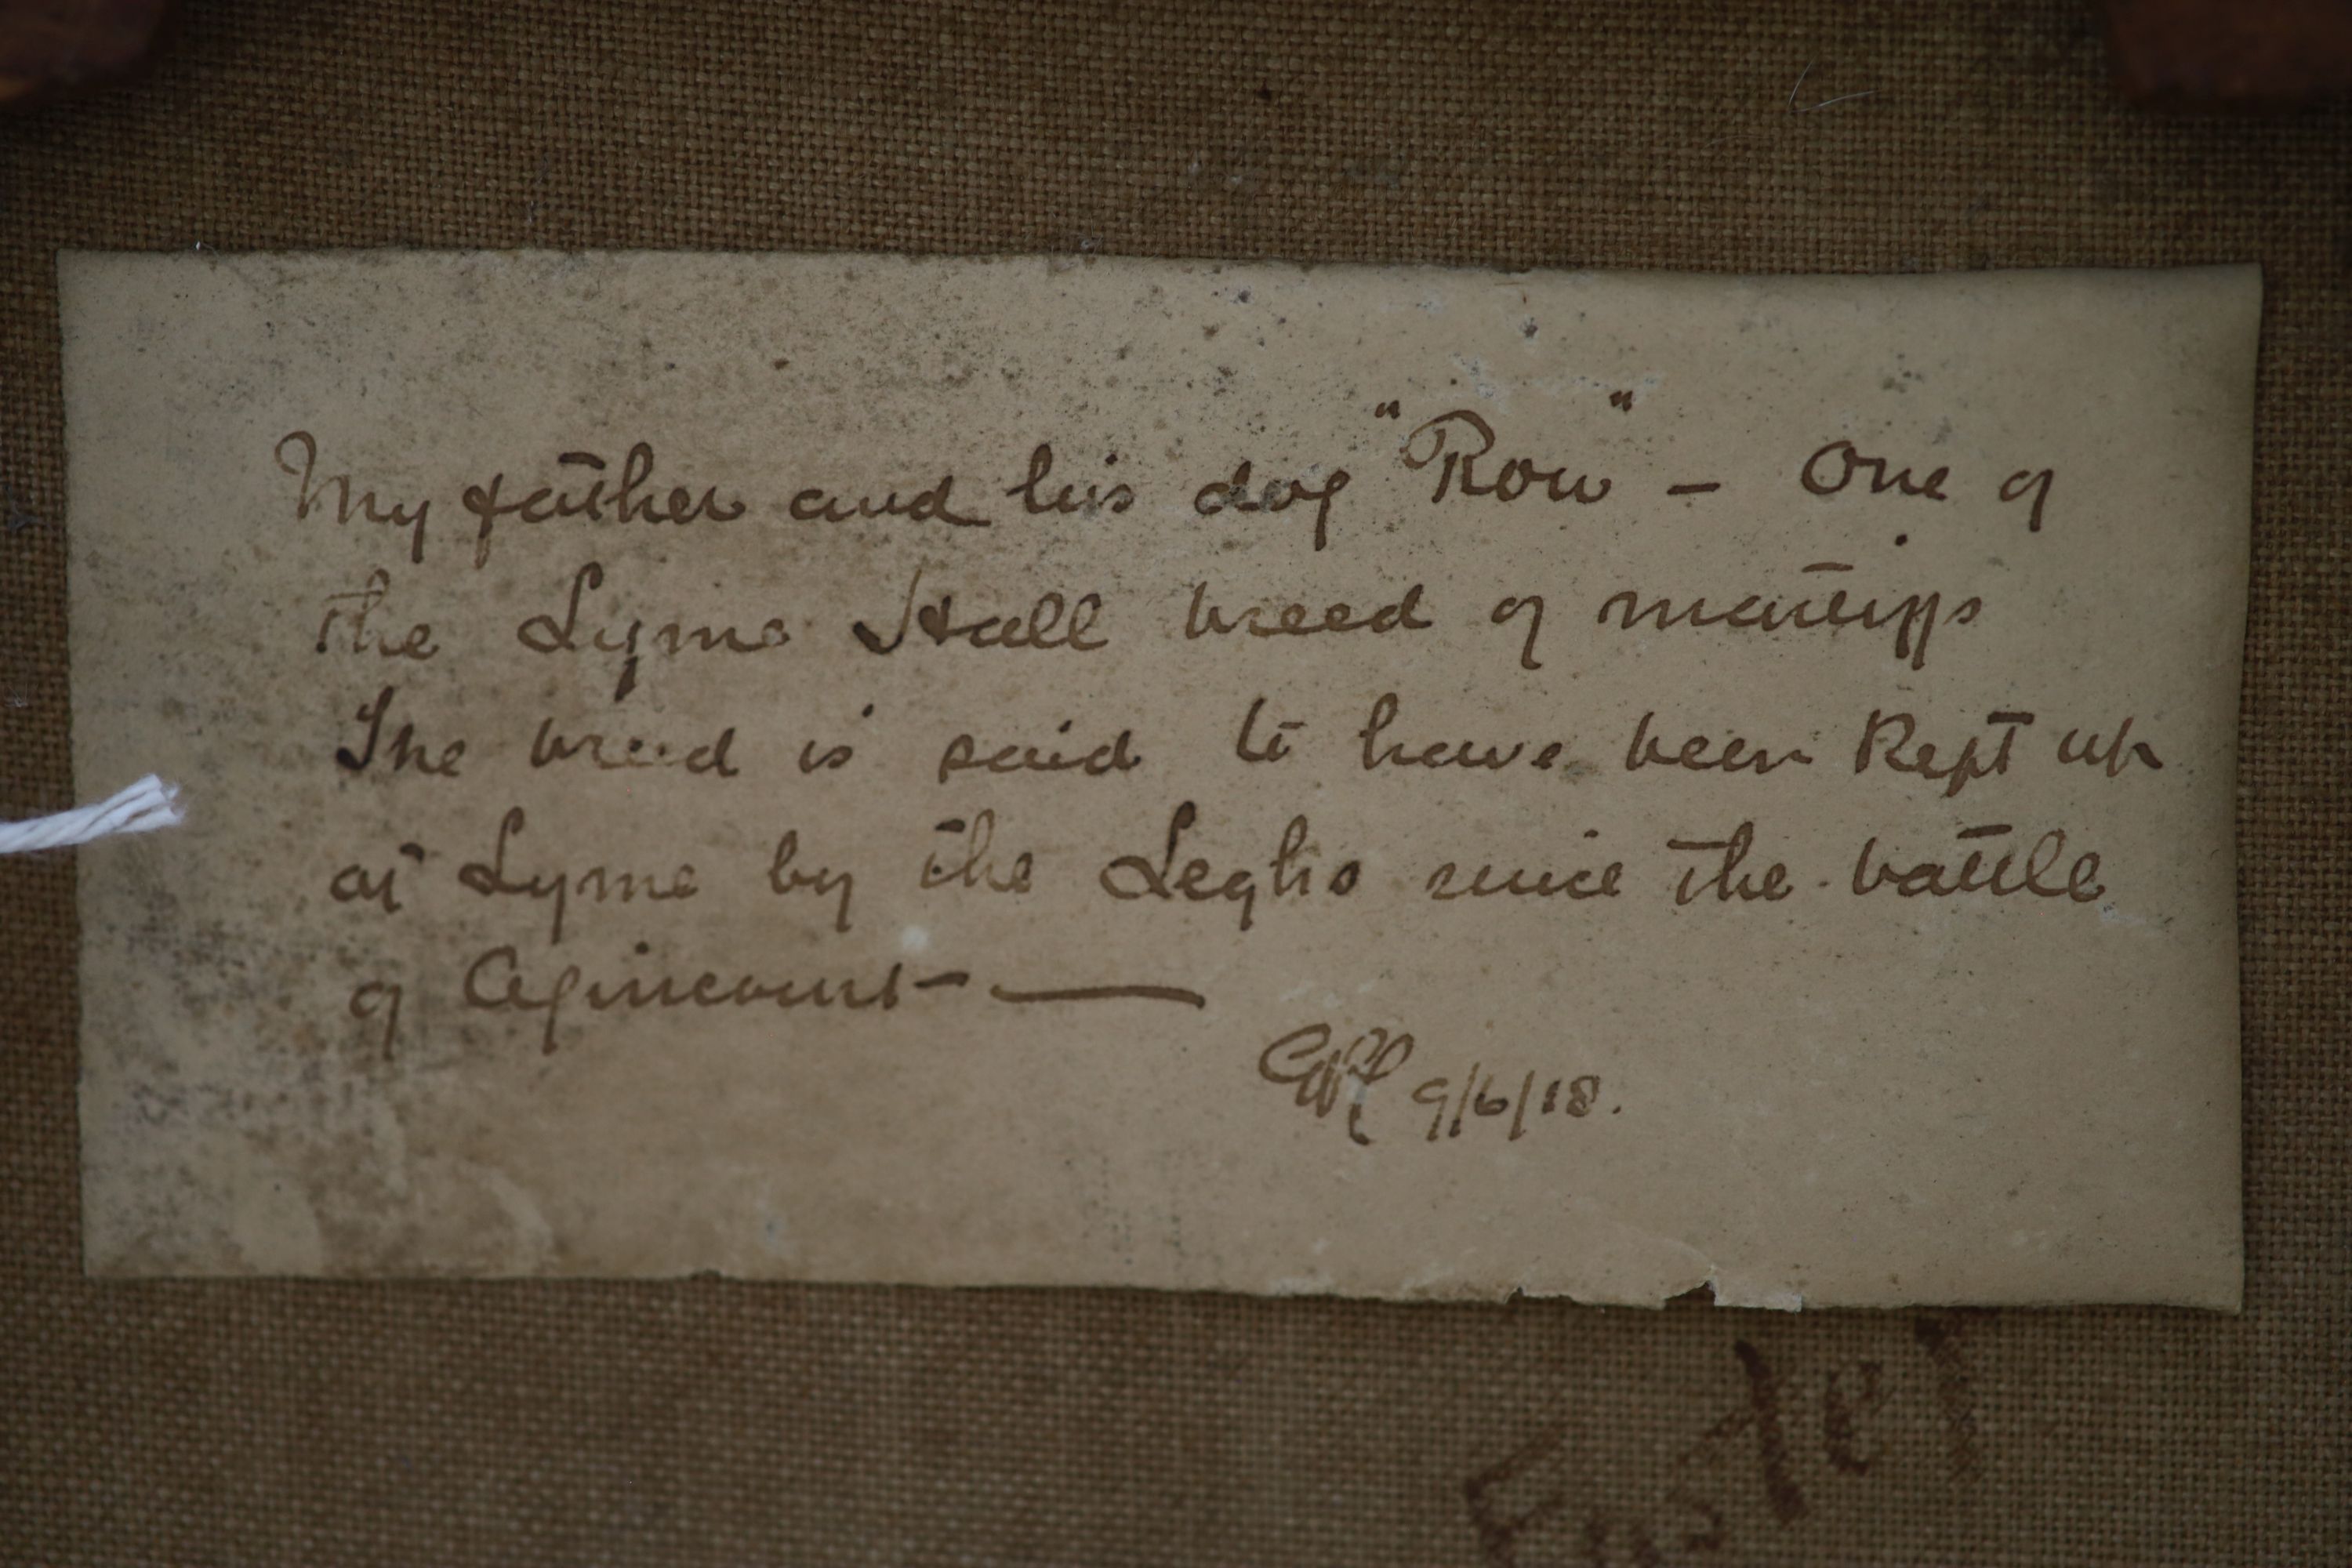 My father and his dog "Row" - One of
the Lyme Hall breed of mastiffs
The breed is said to have been kept up
at Lyme by the Leghs since the battle
of Agincourt -
9/6/18.
Foster